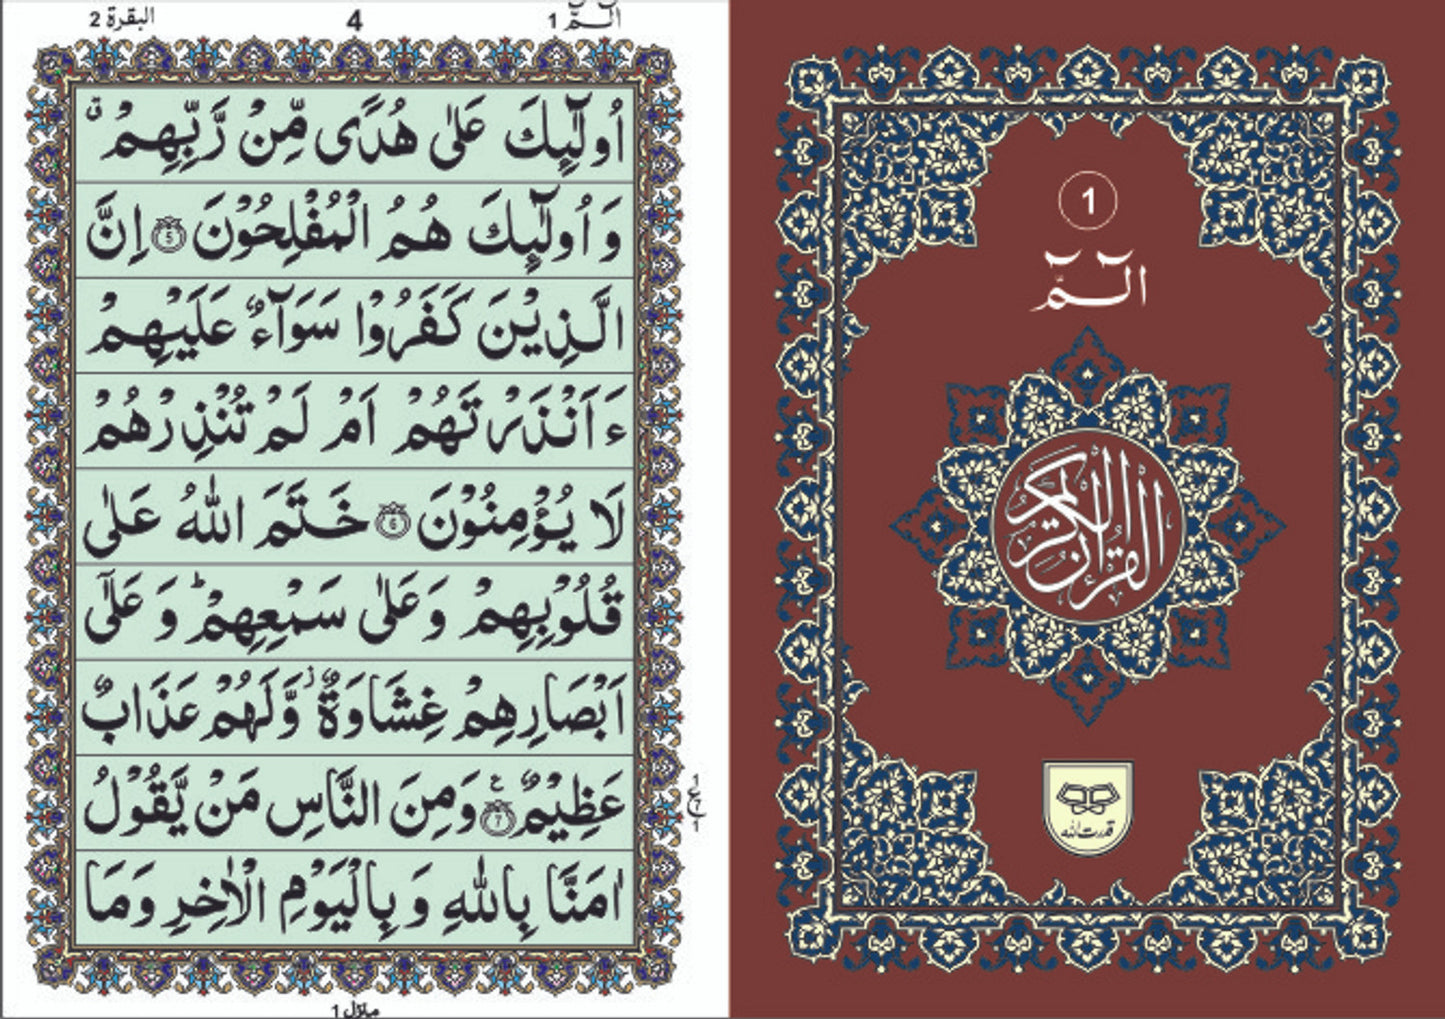 الٓـمّٓ 1
4
البقرة 2
اُولٰٓئِكَ عَلٰى هُدًى مِّنْ رَّبِّهِمْ ۛق
وَ اُولٰٓئِكَ هُمُ الْمُفْلِحُوْنَ ﴿5﴾ اِنَّ
الَّذِيْنَ كَفَرُوْا سَوَآءٌ عَلَيْهِمْ
ءَاَنْذَرْتَهُمْ اَمْ لَمْ تُنْذِرْهُمْ
لَا يُؤْمِنُوْنَ ﴿6﴾ خَتَمَ اللّٰهُ عَلٰى
قُلُوْبِهِمْ وَ عَلٰى سَمْعِهِمْ ؕ وَ عَلٰٓى
اَبْصَارِهِمْ غِشَاوَةٌ ز وَّ لَهُمْ عَذَابٌ
عَظِيْمٌ ﴿7﴾ ع وَمِنَ النَّاسِ مَنْ يَّقُوْلُ
اٰمَنَّا بِاللّٰهِ وَ بِالْيَوْمِ الْاٰخِرِ وَمَا
1
ع
7
1
منزل 1
1
الٓـمّٓ
القرآن الكريم
قدرت اللہ